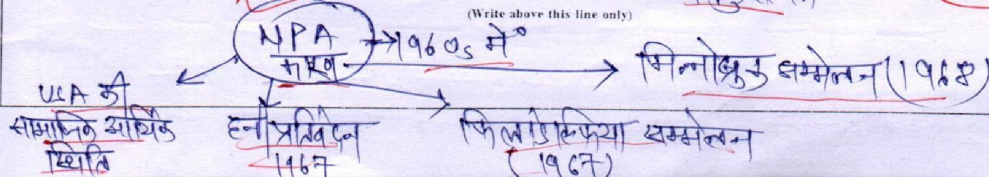 (Write above this line only)
NPA →1960s में
→ मिन्नोब्रुक सम्मेलन (1968)
USA की
सामाजिक आर्थिक
स्थिति
हनी प्रतिवेदन
1967
फिलाडेल्फिया सम्मेलन
(1967)